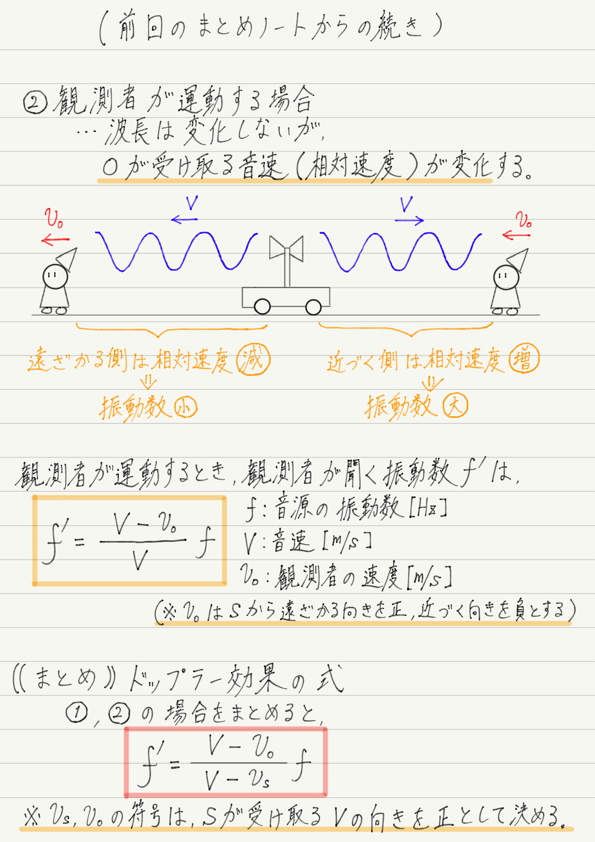 (前回のまとめノートからの続き)
② 観測者が運動する場合
… 波長は変化しないが,
Oが受け取る音速(相対速度)が変化する。
v₀
V
V
v₀
遠ざかる側は相対速度 減
⇓
振動数 小
近づく側は相対速度 増
⇓
振動数 大
観測者が運動するとき, 観測者が聞く振動数 f′ は,
f′ = (V - v₀)/V f
f : 音源の振動数 [Hz]
V : 音速 [m/s]
v₀ : 観測者の速度 [m/s]
(※ v₀ は S から遠ざかる向きを正, 近づく向きを負とする)
《まとめ》ドップラー効果の式
①, ② の場合をまとめると,
f′ = (V - v₀)/(V - vs) f
※ vs, v₀ の符号は, Sが受け取る V の向きを正として決める。